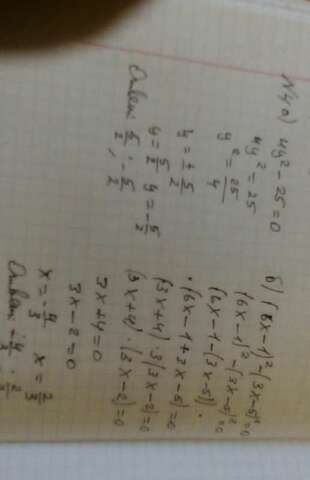 N4 a) 4y² - 25 = 0
4y² = 25
y² = 25/4
y = ± 5/2
y = 5/2 y = -5/2
Ответ: 5/2 ; -5/2
б) (6x-1)² - (3x-5)² = 0
(6x-1)² - (3x-5)² = 0
(6x-1-(3x-5)) ·
· (6x-1+3x-5) = 0
(3x+4) · 3(3x-2) = 0
(3x+4) · (3x-2) = 0
3x+4 = 0
3x-2 = 0
x = -4/3 x = 2/3
Ответ: -4/3 ; 2/3